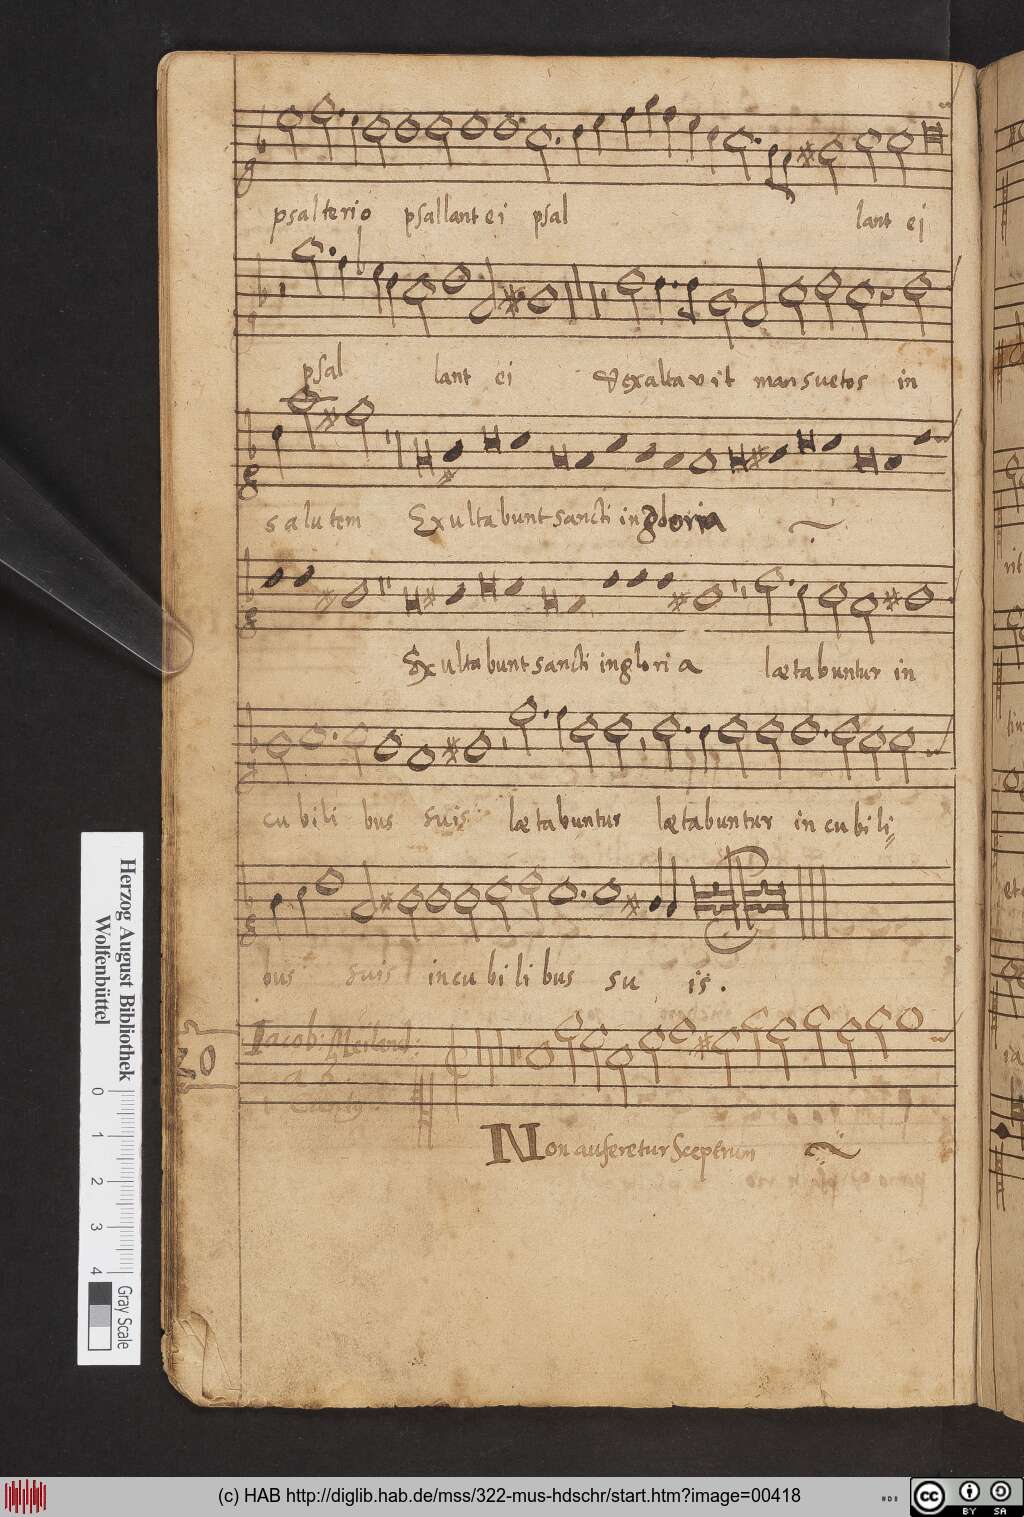 psalterio psallant ei psal lant ei
psal lant ei & exaltavit mansuetos in
salutem Exultabunt sancti in gloria
Exultabunt sancti in gloria lætabuntur in
cubili bus suis lætabuntur lætabuntur in cubili
bus suis in cubilibus su is.
Iacob: Meiland:
20
Non auferetur Sceptrum
Herzog August Bibliothek
Wolfenbüttel
0 1 2 3 4
Gray Scale
(c) HAB http://diglib.hab.de/mss/322-mus-hdschr/start.htm?image=00418
cc BY SA